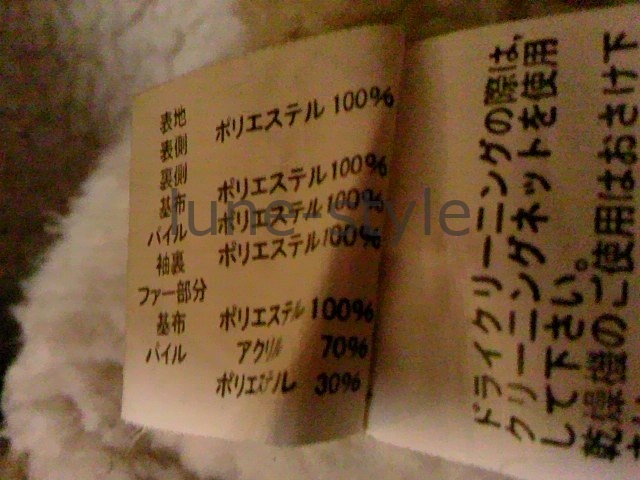 表地
表側 ポリエステル 100%
裏側
基布 ポリエステル 100%
パイル ポリエステル 100%
袖裏 ポリエステル 100%
ファー部分
基布 ポリエステル 100%
パイル アクリル 70%
ポリエステル 30%
ドライクリーニングの際は、
クリーニングネットを使用
して下さい。
乾燥機のご使用はおさけ下
rune-style